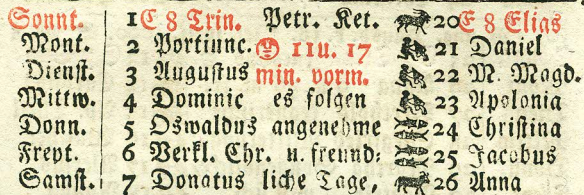 Sonnt. 1 C 8 Trin. Petr. Ket. 20 E 8 Elias
Mont. 2 Portiunc. 11 u. 17 21 Daniel
Dienst. 3 Augustus min. vorm. 22 M. Magd.
Mittw. 4 Dominic es folgen 23 Apolonia
Donn. 5 Oswaldus angenehme 24 Christina
Freyt. 6 Verkl. Chr. u. freund⸗ 25 Jacobus
Samst. 7 Donatus liche Tage, 26 Anna